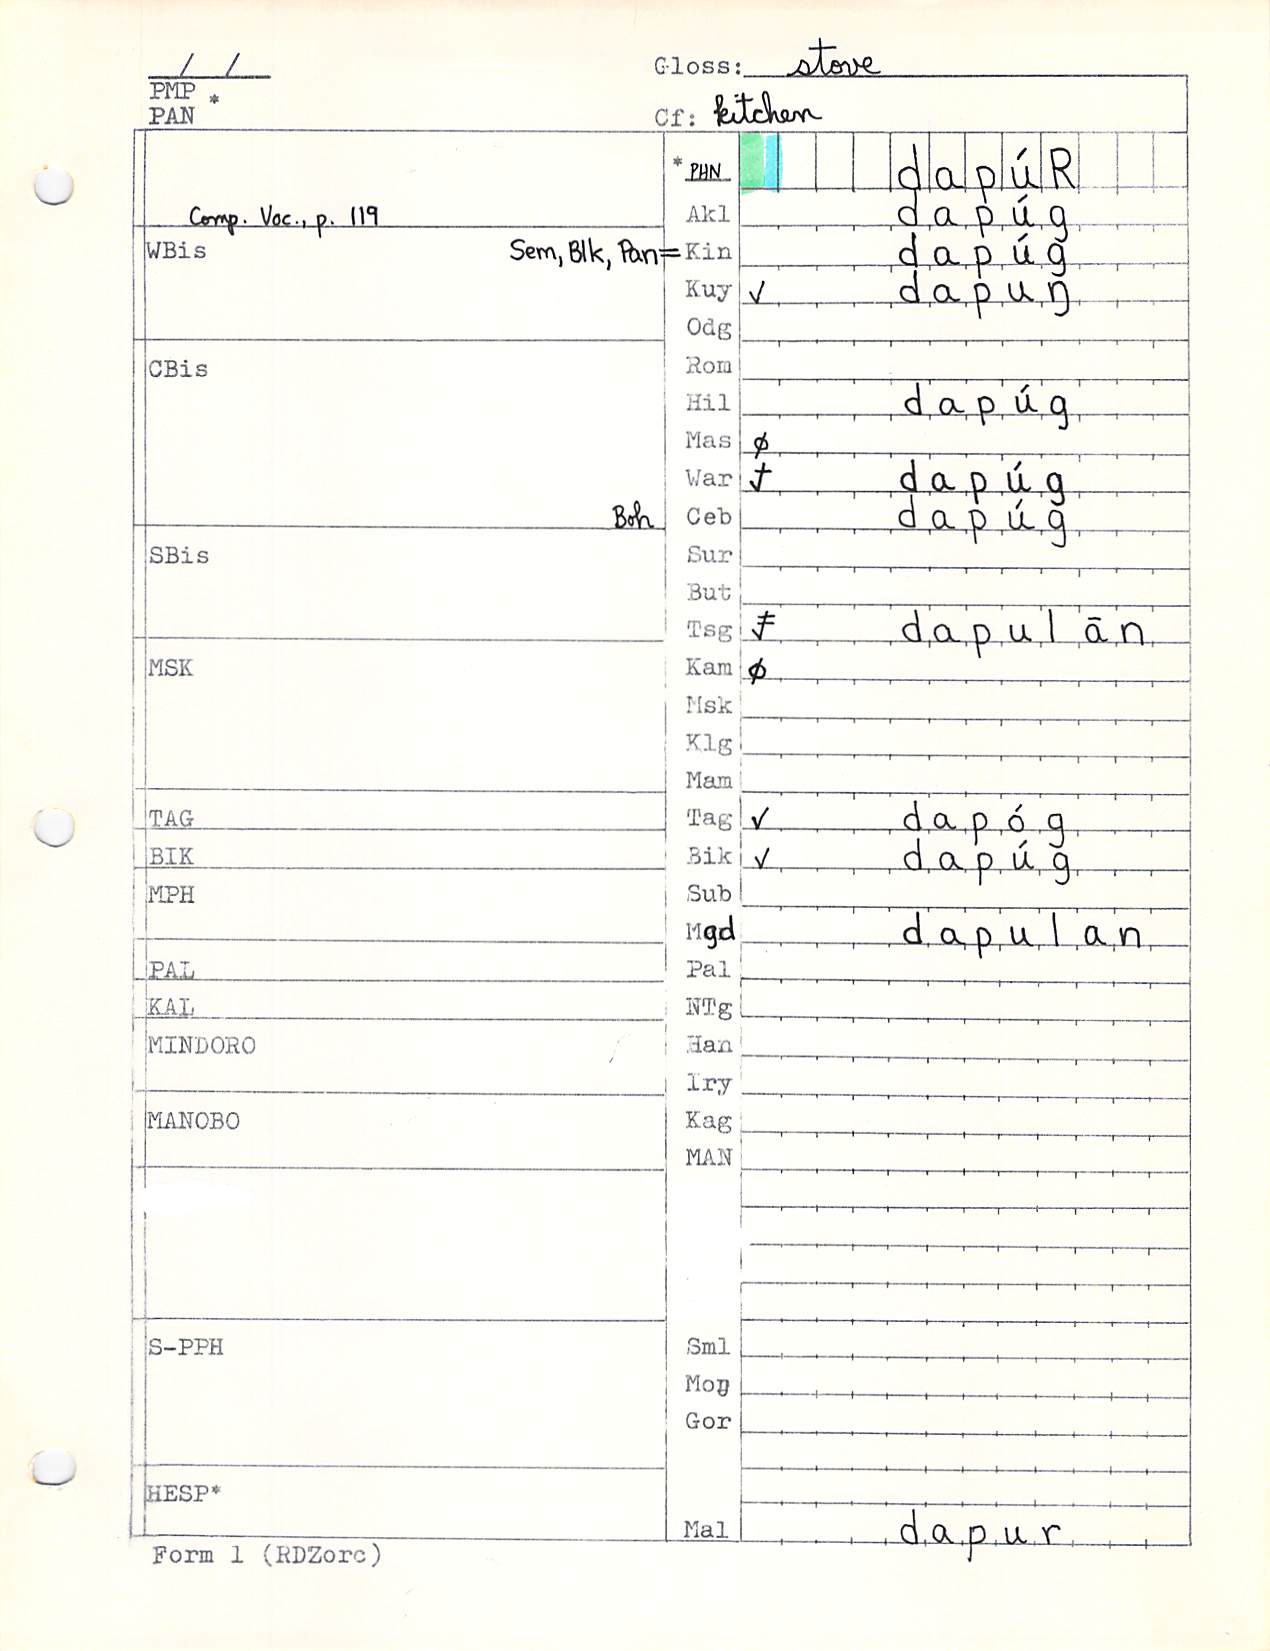 / / Gloss: stove
PMP
PAN * Cf: kitchen
* PHN dapúR
Comp. Voc., p. 119 Akl dapúg
WBis Sem, Blk, Pan= Kin dapúg
Kuy ✓ dapuŋ
Odg
CBis Rom
Hil dapúg
Mas ∅
War dapúg
Boh Ceb dapúg
SBis Sur
But
Tsg dapulān
MSK Kam ∅
Msk
Klg
Mam
TAG Tag ✓ dapóg
BIK Bik ✓ dapúg
MPH Sub
Mgd dapulan
PAL Pal
KAL NTg
MINDORO Han
Iry
MANOBO Kag
MAN
S-PPH Sml
Moŋ
Gor
HESP*
Mal dapur
Form 1 (RDZorc)